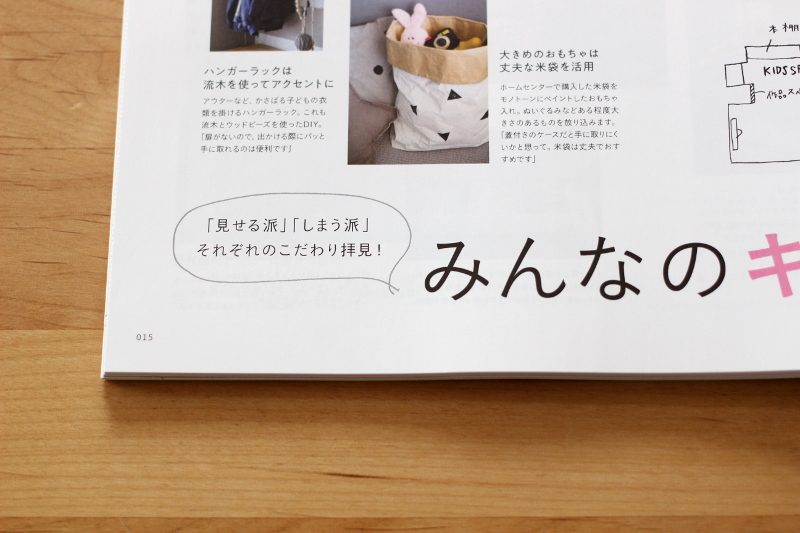 ハンガーラックは
流木を使ってアクセントに
アウターなど、かさばる子どもの衣
類を掛けるハンガーラック。これも
流木とウッドビーズを使ったDIY。
「扉がないので、出かける際にパッと
手に取れるのは便利です」
大きめのおもちゃは
丈夫な米袋を活用
ホームセンターで購入した米袋を
モノトーンにペイントしたおもちゃ
入れ。ぬいぐるみなどある程度大
きさのあるものを放り込みます。
「蓋付きのケースだと手に取りにく
いかと思って。米袋は丈夫でおす
すめです」
本棚
KIDS SP
作品ス
「見せる派」「しまう派」
それぞれのこだわり拝見!
みんなのキ
015